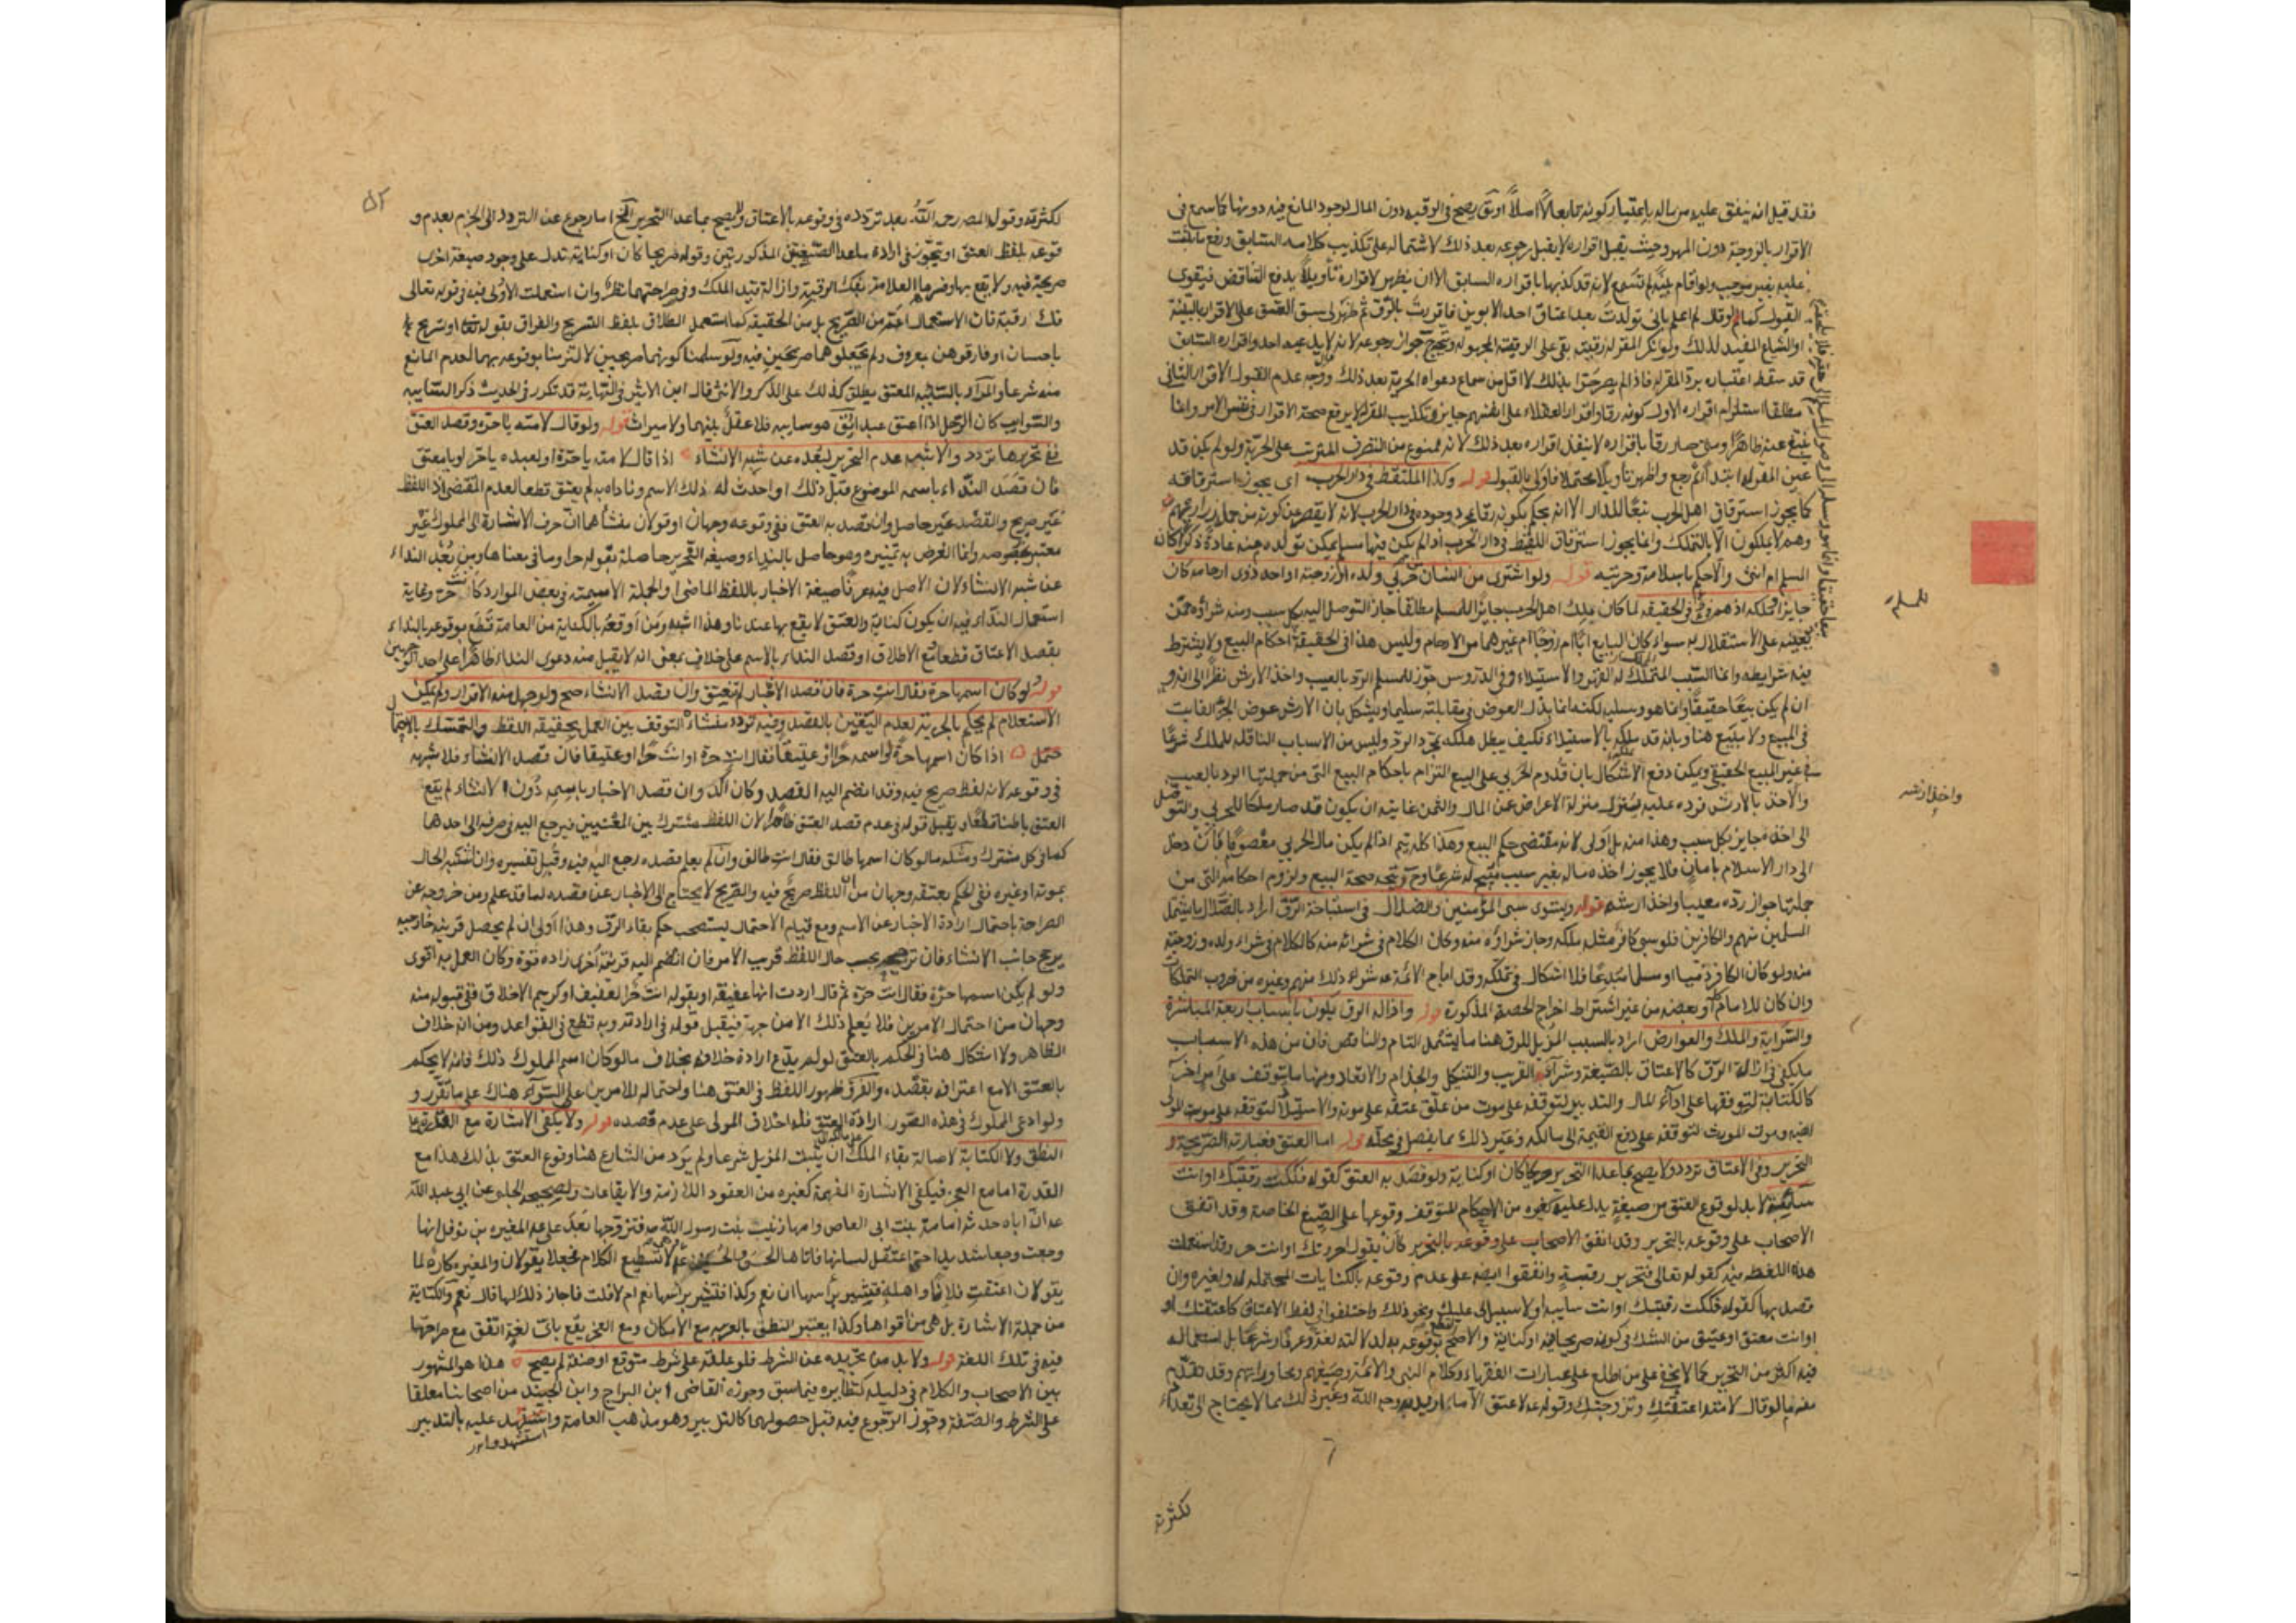 فقد قيل انه ينفق عليه من ماله باعتبار كونه تابعا لا اصلا او تق يصح في الرقية دون المال لوجود المانع فيه دونها كما سمع في
الاقرار بالزوجية دون المهر وحيث يقبل اقراره لا يقبل رجوعه بعد ذلك لاشتماله على تكذيب كلامه السابق ورفع ما ثبت
عليه بغير موجب ولو اقام بينة لم تسمع لانه قد كذبها باقراره السابق الا ان يظهر لاقراره تأويلا يدفع التناقض فيقوى
القبول كما لو قال لم اعلم باني تولدت بعد اعتاق احد الابوين فاقررت بالرق ثم ظهر لي سبق العتق على الاقرار بالبينة
او الشياع المفيد لذلك ولو انكر المقر له رقيته بقي على الرقية المجهولة ويتجه جواز رجوعه لانه لا يد عليه لاحد واقراره السابق
قد سقط اعتباره برد المقر له فاذا لم يصر حرا بذلك لا اقل من سماع دعواه الحرية بعد ذلك ووجه عدم القبول الاقرار الثاني
مطلقا استلزام اقراره الاول كونه رقا واقرار العقلاء على انفسهم جايز وتكذيب المقر له لا يرفع صحة الاقرار في نفس الامر وانما
ينتفي عنه ظاهرا ومتى صار رقا باقراره لا ينفذ اقراره بعد ذلك لانه ممنوع من التصرف المترتب على الحرية ولو لم يكن قد
عين المقر له ابتداء ثم رجع واظهر تأويلا محتملا فاولى بالقبول قوله وكذا الملتقط في دار الحرب اي يجوز استرقاقه
كما يجوز استرقاق اهل الحرب تبعا للدار الا انه يحكم بكونه رقا بمجرد وجوده في دار الحرب لانه لا يقصر عن كونه من جملة ذراريهم
وهم لا يملكون الا بالتملك وانما يجوز استرقاق اللقيط في دار الحرب اذا لم يكن فيها مسلم يمكن تولده منه عادة ذكرا كان
المسلم ام انثى والا حكم باسلامه وحريته قوله ولو اشترى من انسان حربي ولده او زوجته او احد ذوي ارحامه كان
جايزا وملكه اذ هم فيء في الحقيقة لما كان ملك اهل الحرب جايزا للمسلم مطلقا جاز التوصل اليه بكل سبب ومنه شراؤه ممن
يعينه على الاستقلال به سواء كان البايع ابا ام زوجا ام غيرهما من الارحام وليس هذا في الحقيقة احكام البيع ولا يشترط
فيه شرايطه وانما السبب المملك له القهر والاستيلاء وفي الدروس جوز للمسلم الرد بالعيب واخذ الارش نظرا الى انه و
ان لم يكن بيعا حقيقيا وانما هو وسيلة لكنه انما بذل العوض في مقابلته سليما ويشكل بان الارش عوض الجزء الفايت
في المبيع ولا مبيع هنا وبانه قد ملكه بالاستيلاء فكيف يبطل ملكه بمجرد الرد وليس من الاسباب الناقلة للملك شرعا
في غير المبيع الحقيقي ويمكن دفع الاشكال بان قدوم الحربي على البيع التزام باحكام البيع التي من جملتها الرد بالعيب
والاخذ بالارش فرده عليه ينزل منزلة الاعراض عن المال والثمن غايته ان يكون قد صار ملكا للحربي والتوصل
الى اخذه جايز بكل سبب وهذا منه بل اولى لانه مقتضى حكم البيع وهذا كله يتم اذا لم يكن مال الحربي معصوما كأن دخل
الى دار الاسلام بامان فلا يجوز اخذ ماله بغير سبب مبيح له شرعا وح يتجه صحة البيع ولزوم احكامه التي من
جملتها جواز رده معيبا واخذ ارشه قوله ويستوي سبي المؤمنين والضلال في استباحة الرق اراد بالضلال ما يشمل
المسلمين منهم والكافرين فلو سبى كافر مثله ملكه وجاز شراؤه منه وكان الكلام في شرائه منه كالكلام في شراء ولده وزوجته
منه ولو كان الكافر ذميا او مسلما مبدعا فلا اشكال في تملكه وقد اباح الائمة عه شراء ذلك منهم وغيره من ضروب التملكات
وان كان للامام او بعضه من غير اشتراط اخراج الحصة المذكورة قوله وازالة الرق يكون باسباب اربعة المباشرة
والسراية والملك والعوارض اراد بالسبب المزيل للرق هنا ما يشمل التام والناقص فان من هذه الاسباب
ما يكفي في ازالة الرق كالاعتاق بالصيغة وشراء القريب والتنكيل والجذام والاقعاد ومنها ما يتوقف على امر اخر
كالكتابة لتوقفها على اداء المال والتدبير لتوقفه على موت من علق عتقه على موته والاستيلاد لتوقفه على موت المولى
لغيه وموت المورث لتوقفه على دفع القيمة الى مالكه وغير ذلك مما يفصل في محله قوله اما العتق فعبارته الصريحة و
التحرير وفي الاعتاق تردد ولا يصح بما عدا التحرير صريحا كان او كناية ولو قصد به العتق كقوله فككت رقبتك او انت
سايبة لا بد لوقوع العتق من صيغة يدل عليه كغيره من الاحكام المتوقف وقوعها على الصيغ الخاصة وقد اتفق
الاصحاب على وقوعه بالتحرير وقد اتفق الاصحاب على وقوعه بالتحرير كأن يقول حررتك او انت حر وقد استعملت
هذه اللفظة فيه كقوله تعالى فتحرير رقبة واتفقوا ايضا على عدم وقوعه بالكنايات المحتملة له ولغيره وان
قصد بها كقوله فككت رقبتك او انت سايبة او لا سبيل لي عليك ونحو ذلك واختلفوا في لفظ الاعتاق كاعتقتك او
او انت معتق او عتيق من الشك في كونه صريحا فيه او كناية والاصح وقوعه به لدلالته لغة وعرفا وشرعا بل استعماله
فيه اكثر من التحرير كما لا يخفى على من اطلع على عبارات الفقهاء وكلام النبي والائمة وصيغهم ومحاوراتهم وقد تقدم
منه ما لو قال لامته اعتقتك وتزوجتك وقوله عه لا عتق الا ما اريد به وجه الله وغير ذلك مما لا يحتاج الى تعداده
للمسلم
واخذ ارشه
لكثرته
۵۲
لكثرته وقول المصـ رحمه الله بعد تردده في وقوعه بالاعتاق ولا يصح بما عدا التحرير الخ اما رجوع عن التردد الى الجزم بعدم و
قوعه بلفظ العتق او تجوز في ارادة ما عدا الصيغتين المذكورتين وقوله صريحا كان او كناية تدل على وجود صيغة اخرى
صريحة فيه ولا يقع بها وفسرها العلامة بفك الرقبة وازالة قيد الملك وفي صراحتهما نظر وان استعملت الاولى فيه في قوله تعالى
فك رقبة فان الاستعمال اعم من الصريح بل من الحقيقة كما استعمل الطلاق بلفظ التسريح والفراق بقوله تعالى او تسريح
باحسان او فارقوهن بمعروف ولم يجعلوهما صريحين فيه ولو سلمنا كونهما صريحين لالتزمنا بوقوعه بهما لعدم المانع
منه شرعا والمراد بالسايبة المعتق يطلق كذلك على الذكر والانثى قال ابن الاثير في النهاية قد تكرر في الحديث ذكر السايبة
والسوايب كان الرجل اذا اعتق عبدا فق هو سايبه فلا عقل بينهما ولا ميراث قوله ولو قال لامته يا حرة وقصد العتق
ففي تحريرها تردد والاشبه عدم التحرير لبعده عن شبه الانشاء اذا قال لامته يا حرة او لعبده يا حر او يا معتق
فان قصد النداء باسمه الموضوع قبل ذلك او احدث له ذلك الاسم وناداه به لم يعتق قطعا لعدم المقتضى اذ اللفظ
غير صريح والقصد غير حاصل وان قصد به العتق ففي وقوعه وجهان او قولان منشأهما ان حرف الاشارة الى المملوك غير
معتبر بخصوصه وانما الغرض به تمييزه وهو حاصل بالنداء وصيغة التحرير حاصلة بقوله حر او ما في معناها ومن بعد النداء
عن شبه الانشاء لان الاصل فيه عرفا صيغة الاخبار باللفظ الماضي او الجملة الاسمية في بعض الموارد كانت حر وغاية
استعمال النداء فيه ان يكون كناية والعتق لا يقع بها عندنا وهذا اشبه ومن اوقعه بالكناية من العامة قطع بوقوعه بالنداء
بقصد الاعتاق قطعا ومع الاطلاق او قصد النداء بالاسم على خلاف بمعنى انه لا يقبل منه دعوى النداء ظاهرا على احد الوجهين
قوله لو كان اسمها حرة فقال انت حرة فان قصد الاخبار لم تنعتق وان قصد الانشاء صح ولو جهل منه الامران ولم يمكن
الاستعلام لم يحكم بالحرية لعدم اليقين بالقصد وفيه تردد منشأه التوقف بين العمل بحقيقة اللفظ والتمسك بالاحتمال
محتمل اذا كان اسمها حرة او اسمه حرا او عتيقا فقال انت حرة او انت حر او عتيق فان قصد الانشاء فلا شبهة
في وقوعه لانه لفظ صريح فيه وقد انضم اليه القصد وكان آكد وان قصد الاخبار باسمه دون الانشاء لم يقع
العتق باطنا قطعا ويقبل قوله في عدم قصد العتق ظاهرا لان اللفظ مشترك بين المعنيين فيرجع اليه في صرفه الى احدهما
كما في كل مشترك ومثله ما لو كان اسمها طالق فقال انت طالق وان لم يعلم قصده رجع اليه فيه وقبل تفسيره وان اشتبه الحال
بموته او غيره ففي الحكم بعتقه وجهان من ان اللفظ صريح فيه والصريح لا يحتاج الى الاخبار عن قصده لما قد علم ومن خروجه عن
الصراحة باحتمال ارادة الاخبار عن الاسم ومع قيام الاحتمال يستصحب حكم بقاء الرق وهذا اولى ان لم يحصل قرينة خارجية
يرجح جانب الانشاء فان ترجحه بحسب حال اللفظ قريب الامر فان انضم اليه قرينة اخرى زاده قوة وكان العمل به اقوى
ولو لم يكن اسمها حرة فقال انت حرة ثم قال اردت انها عفيفة او بقوله انت حر العفيف او كريم الاخلاق ففي قبوله منه
وجهان من احتمال الامرين فلا يعلم ذلك الا من جهته فيقبل قوله في ارادته وبه قطع في القواعد ومن انه خلاف
الظاهر ولا اشكال هنا في الحكم بالعتق لو لم يدع ارادة خلافه بخلاف ما لو كان اسم المملوك ذلك فانه لا يحكم
بالعتق الا مع اعترافه بقصده والفرق ظهور اللفظ في العتق هنا واحتماله للامرين على السواء هناك على ما تقرر و
ولو ادعى المملوك في هذه الصور ارادة العتق فله احلاف المولى على عدم قصده قوله ولا يكفي الاشارة مع القدرة على
النطق ولا الكتابة لاصالة بقاء الملك الى ان يثبت المزيل شرعا ولم يرد من الشارع هنا وقوع العتق بذلك هذا مع
القدرة اما مع العجز فيكفي الاشارة المفهمة كغيره من العقود اللازمة والايقاعات ولصحيحة الحلبي عن ابي عبد الله
عه ان اباه حدثه امامة بنت ابي العاص وامها زينب بنت رسول الله صه فتزوجها بعد علي عه المغيرة بن نوفل انها
وجعت وجعا شديدا حتى اعتقل لسانها فاتاها الحسن والحسين عه وهي لا تستطيع الكلام فجعلا يقولان والمغيرة كاره لما
يقولان اعتقت فلانا واهله فتشير برأسها ان نعم وكذا فتشير برأسها نعم ام لا قلت فاجاز ذلك لها قال نعم والكتابة
من جملة الاشارة بل هي من اقواها وكذا يعتبر النطق بالعربية مع الامكان ومع العجز يقع باي لغة اتفق مع صراحتها
فيه في تلك اللغة قوله ولا بد من تجريده عن الشرط فلو علقه على شرط متوقع او صفة لم يصح هذا هو المشهور
بين الاصحاب والكلام في دليله كنظايره فيما سبق وجوزه القاضي ابن البراج وابن الجنيد من اصحابنا معلقا
على الشرط والصفة وجوز الرجوع فيه قبل حصولهما كالتدبير وهو مذهب العامة واستشهد عليه بالتدبير